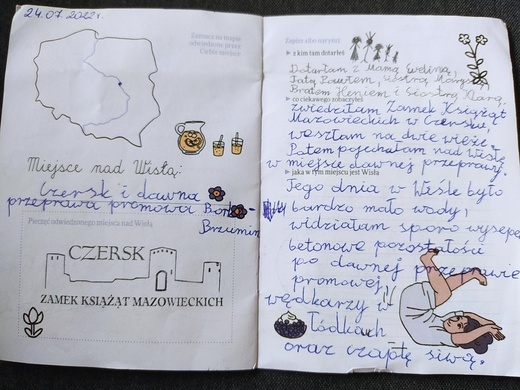 24.07.2022r.
Zaznacz na mapie
odwiedzone przez
Ciebie miejsce.
Miejsce nad Wisłą:
Czersk i dawna
przeprawa promowa
Brzumin
Pieczęć odwiedzonego miejsca nad Wisłą
CZERSK
ZAMEK KSIĄŻĄT MAZOWIECKICH
Zapisz albo narysuj:
z kim tam dotarłeś
Dotarłam z Mamą Eweliną,
Tatą Pawłem, siostrą
Bratem Heniem i siostrą Klarą.
co ciekawego zobaczyłeś
zwiedziłam Zamek Książąt
Mazowieckich w Czersku,
weszłam na dwie wieże.
Potem pojechałam nad Wisłę
w miejsce dawnej przeprawy.
jaka w tym miejscu jest Wisła
Tego dnia w Wiśle było
bardzo mało wody,
widziałam sporo wysep,
betonowe pozostałości
po dawnej przeprawie
promowej,
wędkarzy w
łódkach
oraz czaplę siwą.